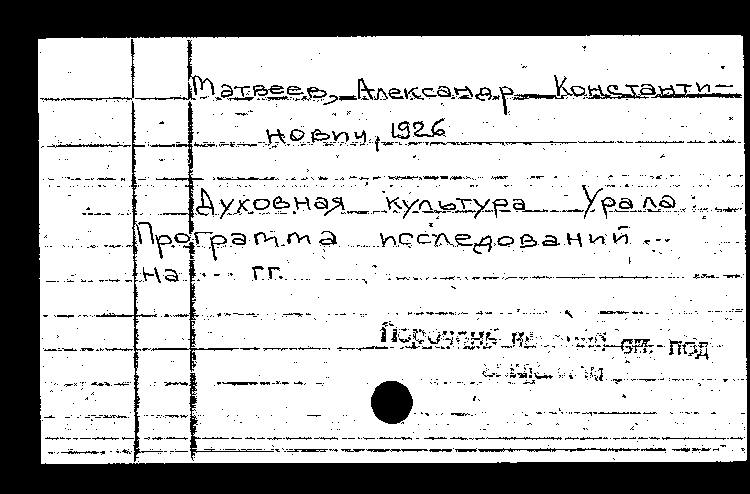 Матвеев, Александр Константи-
нович, 1926
Духовная культура Урала:
Программа исследований...
на ... гг.
см. под